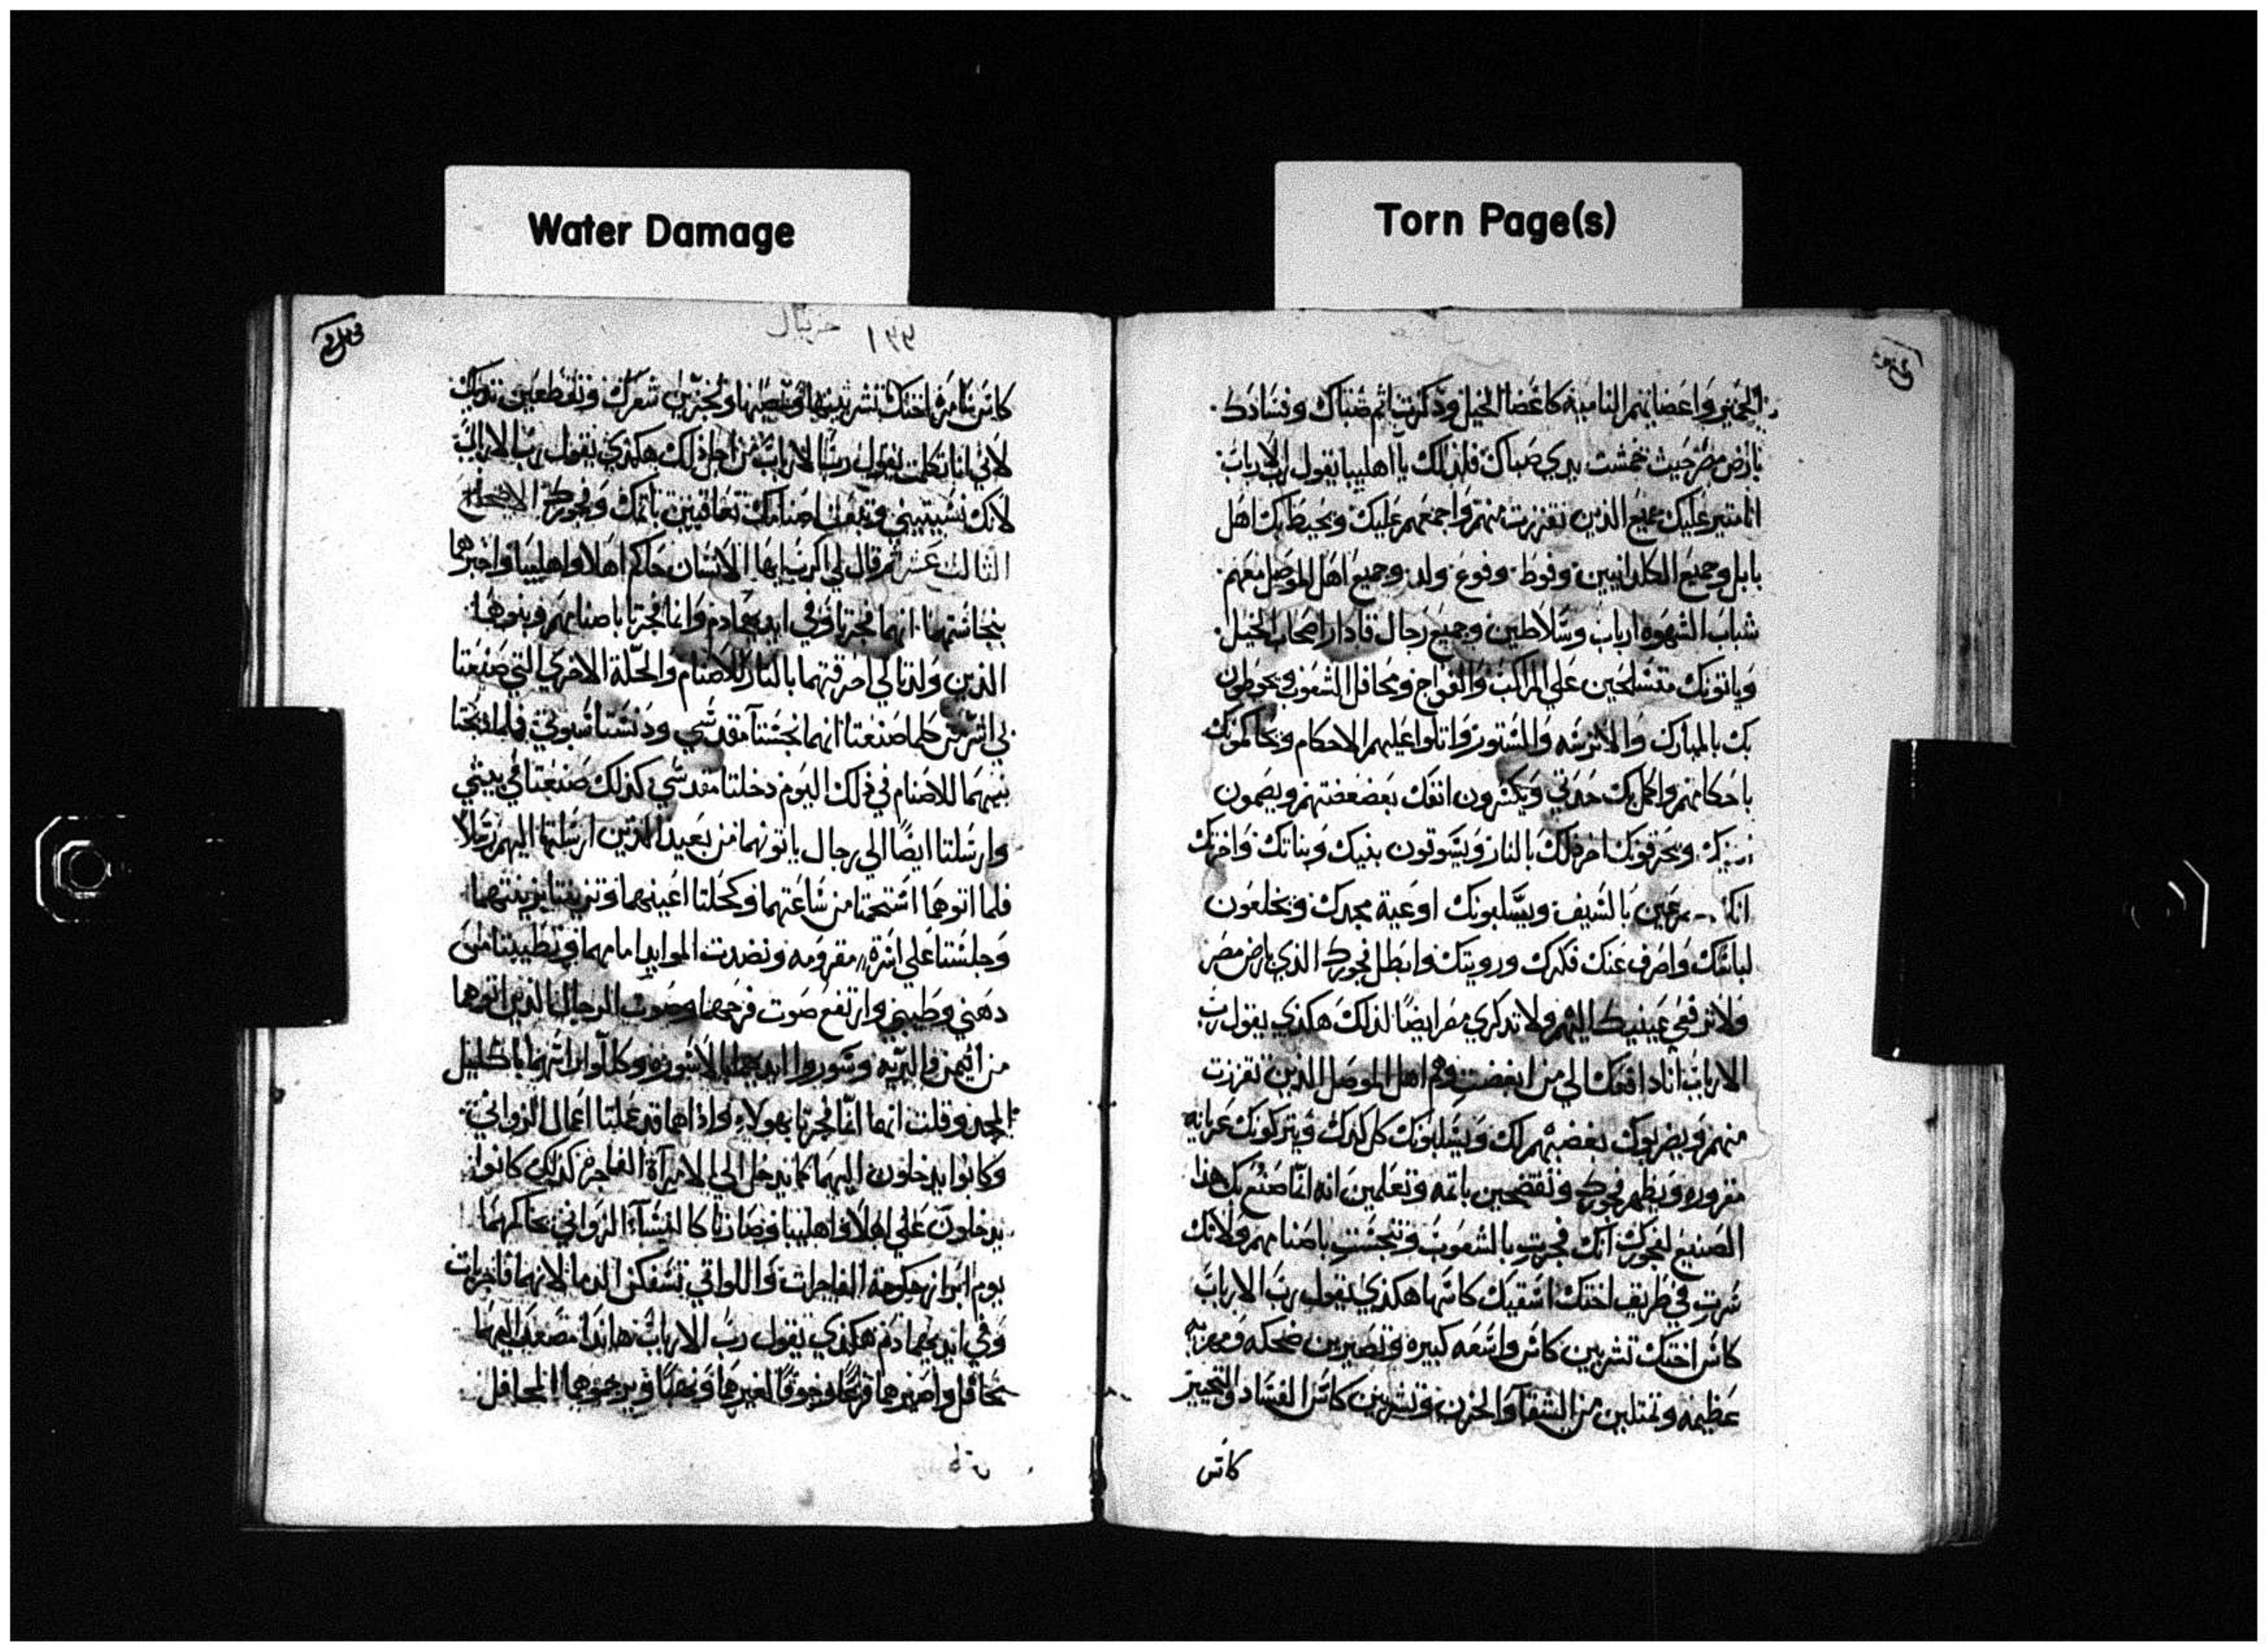 Water Damage
Torn Page(s)
الحمير واعضايهم النامية كاعضا الخيل وذكرت اثم صباك وفسادك
بارض مصر حيث خمشت يدي صباك فلذلك يا اهليبا يقول رب الارباب
انا مثير عليك جميع الذين تقززت منهم واجمعهم عليك ويحيط بك اهل
بابل وجميع الكلدانيين وفوط وفوع ولد وجميع اهل الموصل معهم
شباب الشهوه ارباب وسلاطين وجميع رجال قادار اصحاب الخيل
وياتونك متسلحين على المراكب والفواج ومحافل الشعوب ويحوطون
بك بالمبارك والاترسه والستور واتلوا عليهم الاحكام ويحاكمونك
باحكامهم واكمل بك حدتي ويكسرون انفك بعضعضتهم ويصمون
ويحرقونك اخر ذلك بالنار ويسوقون بنيك وبناتك واخرتك
بالسيف ويسلبونك اوعية مجدك ويخلعون
لباسك واصرف عنك فكرك ورويتك وابطل فجورك الذي بارض مصر
ولا ترفعي عينيك اليهم ولا تذكري مصر ايضا لذلك هكذي يقول رب
الارباب انا دافعك الي من ابغضت وهم اهل الموصل الذين تقززت
منهم ويضربوك بغضبهم لك ويسلبونك كل كدك ويتركونك عريانه
مقروره ويظهر فجورك وتفتضحين باثمه وتعلمين انه انما صنع بك هذا
الصنيع لفجورك انك فجرت بالشعوب وتنجست باصنامهم ولانك
سرت في طريق اختك اسقيك كاسها هكذي يقول رب الارباب
كاس اختك تشربين كاس واسعه كبيره وتصيرين ضحكه ومهزيه
عظيمه وتمتلين من الشقا والحزن وتشربين كاس الفساد والتحيير
كاس
١٩٩
حزقيال
كاس سامره اختك تشربينها وتمصينها وتجزين شعرك وتقطعين ثدييك
لاني انا تكلمت يقول رب الارباب من اجل ذلك هكذي يقول رب الارباب
لانك نسيتيني وتبعت اصنامك تعاقبين باثمك وفجورك الاصحاح
الثالث عشر ثم قال لي الرب ايها الانسان حاكم اهلا واهليبا واخبرهما
بنجاستهما انهما فجرتا وفي ايديهما دم وانما فجرتا باصنامهم وبنوهما
الذين ولدتا لي احرقتهما بالنار للاصنام والخلة الاخري التي صنعتا
لي اشر من كلما صنعتا انهما نجستا مقدسي ودنستا سبوتي فلما ذبحتا
بنيهما للاصنام في ذلك اليوم دخلتا مقدسي كذلك صنعتا في بيتي
وارسلتا ايضا الي رجال ياتونهما من بعيد الذين ارسلتا اليهم رسلا
فلما اتوهما استحمتا من ساعتهما وكحلتا اعينهما وتزينتا بزينتهما
وجلستا على اسرة مفرومه ونضدت الموايد امامهما وتطيبتا من
دهني وطيبي وارتفع صوت فرحهما وصوت الرجال الذين اتوهما
من البرية وسوروا ايديهما بالاسوره وكللوا راسهما باكليل
المجد وقلت انهما انما فجرتا بهولاء واذا هما قد عملتا اعمال الزواني
وكانوا يدخلون اليهما كما يدخل الي الامرآة الفاجرة كذلك كانوا
يدخلون على اهلا واهليبا وصارتا كالنسآء الزواني يحاكمهما
يوم ابرار حكومة الفاجرات واللواتي تسفكن الدما لانهما فاجرتان
وفي ايديهما دم هكذي يقول رب الارباب هاندا مصعد اليهما
محافل واصيرهما فزعا وخوفا لغيرهما ونهبا ويرجموهما المحافل